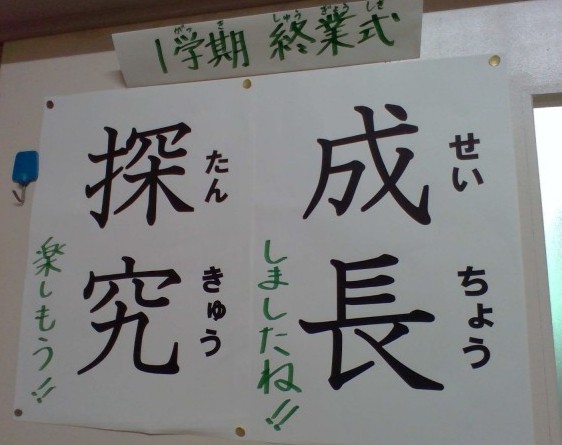 1学期 終業式
がっ き しゅうぎょうしき
成長
せいちょう
しましたね!!
探究
たんきゅう
楽しもう!!